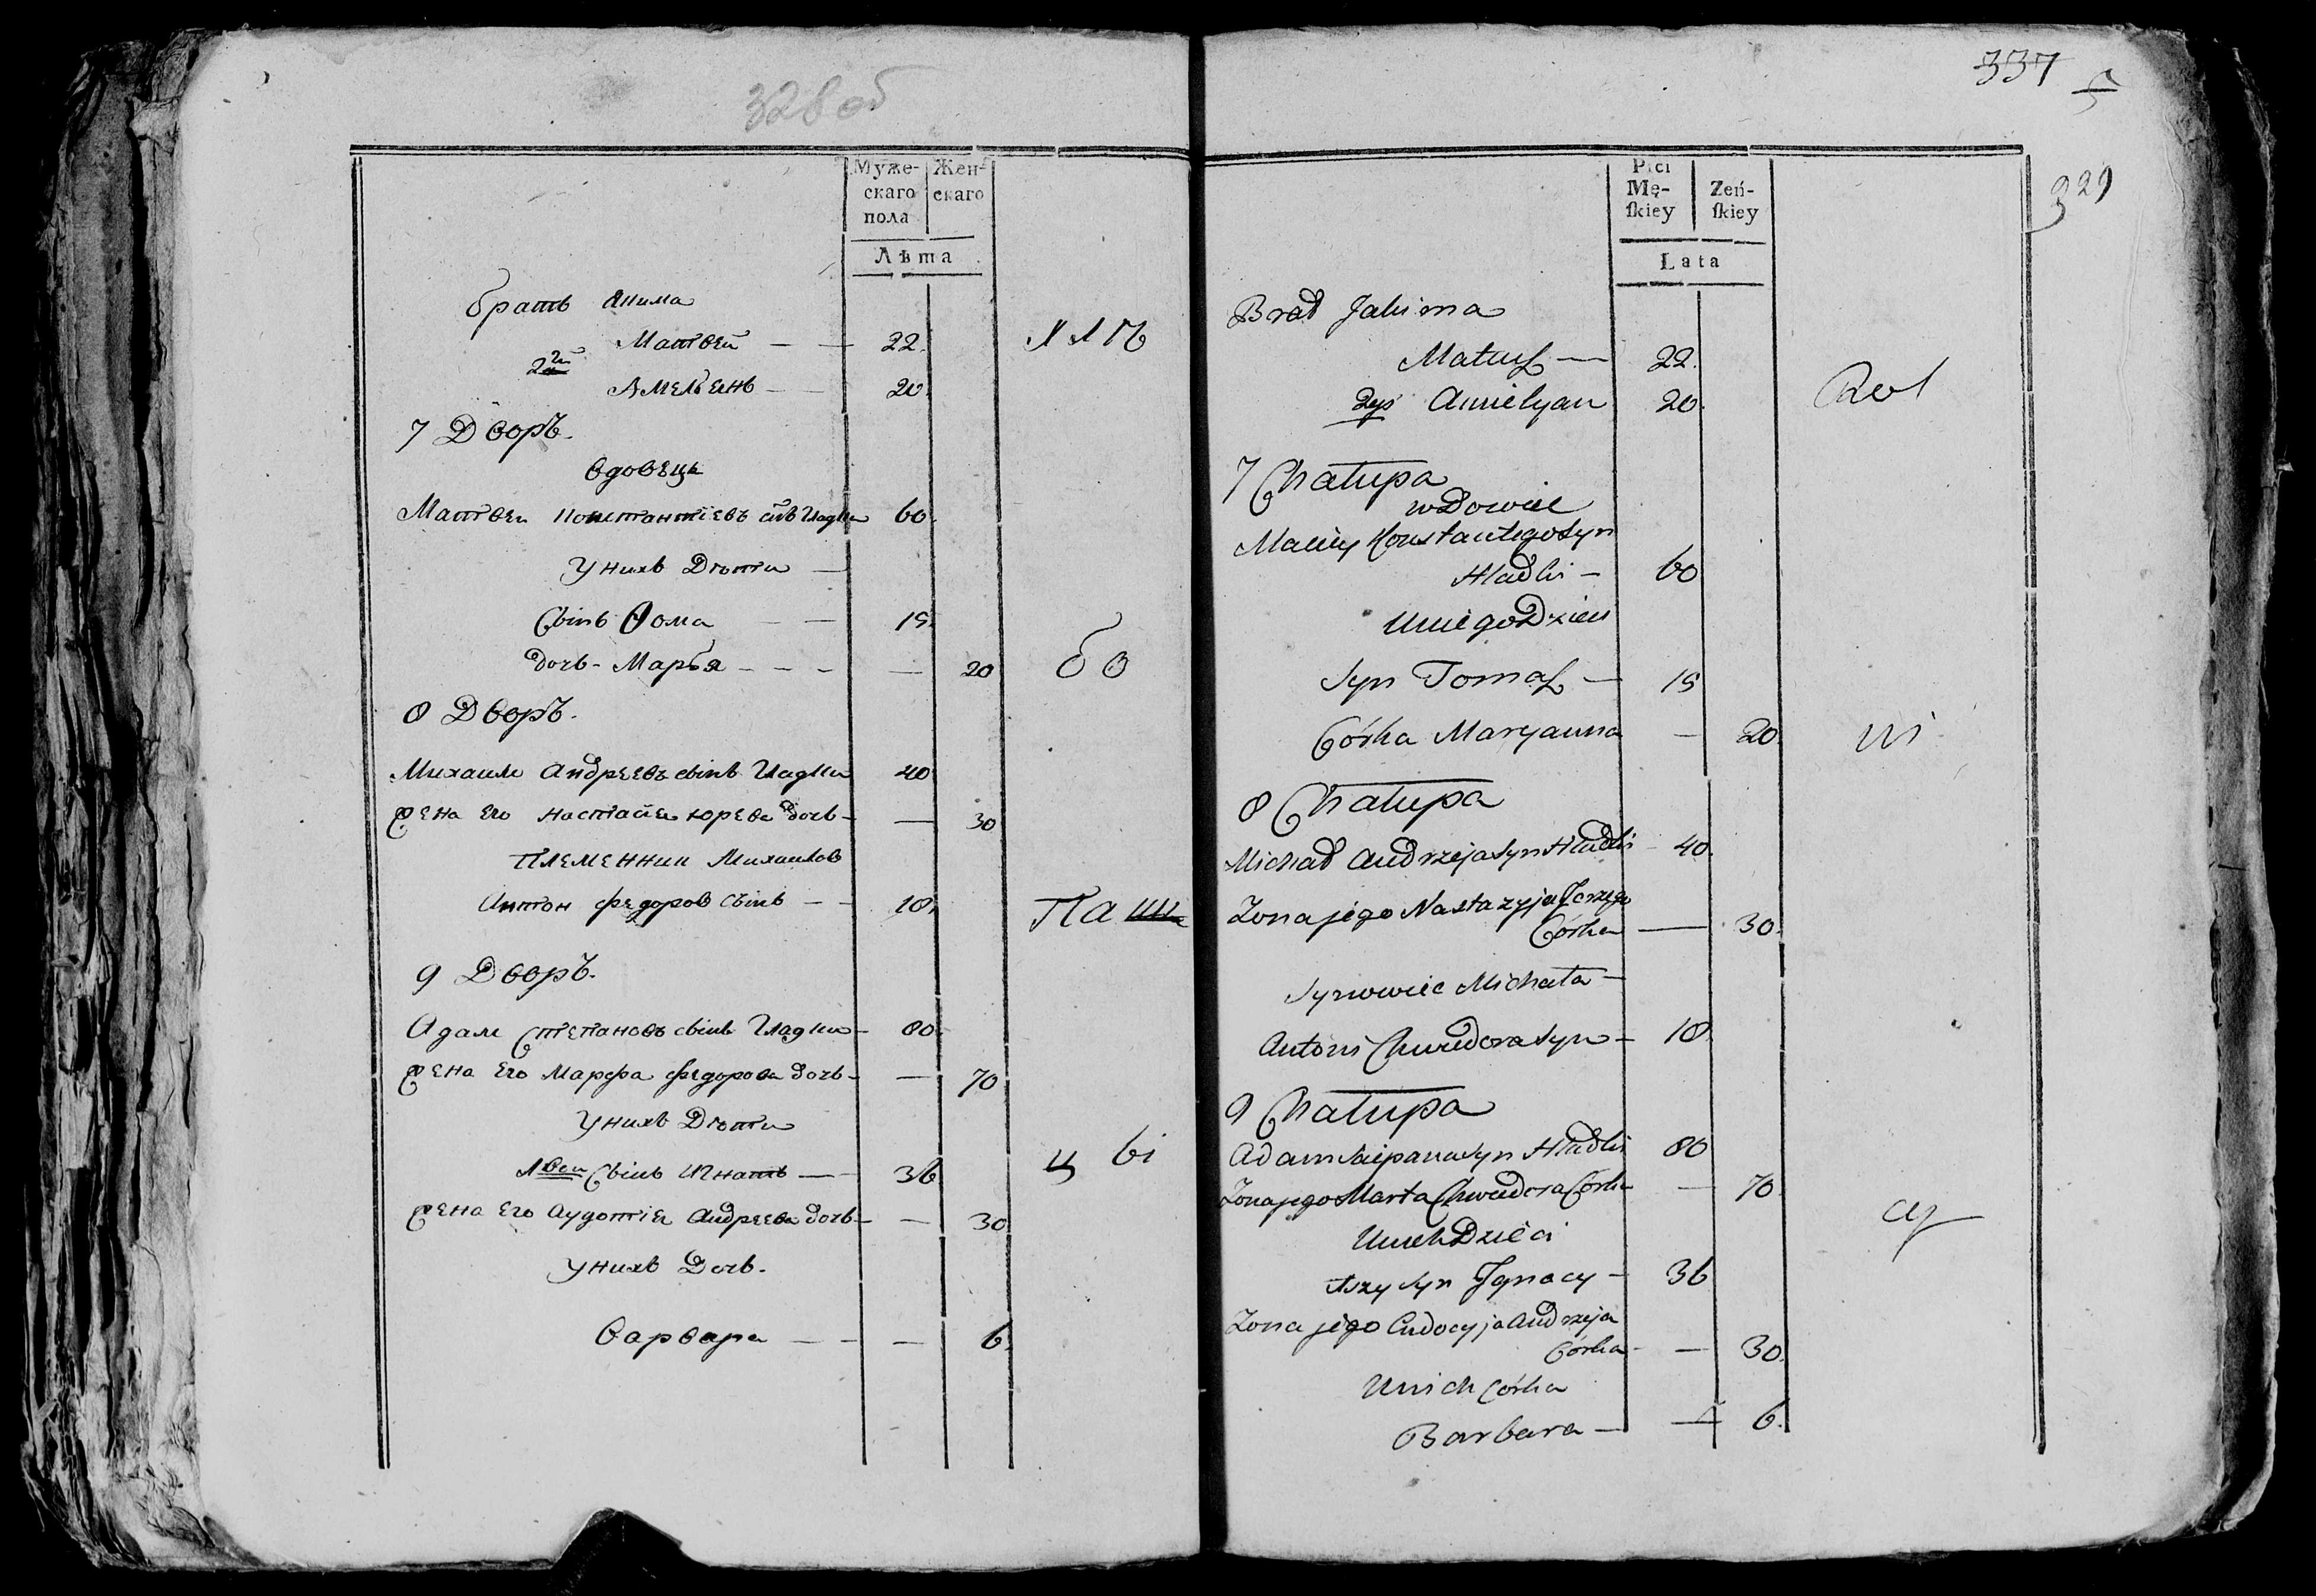 328 об
Муже-
скаго
пола
Жен-
скаго
Лѣта
братъ Якима
Матвей — — 22.
2й
Амельянъ — — 20.
7 Дворъ.
Вдовецъ
Матвей Константіевъ сынъ Гладки 60.
У нихъ Дѣти —
Сынъ Фома — — 15.
дочь - Марья - - - — 20
8 Дворъ.
Михаилъ Андреевъ сынъ Гладки 40
Жена Его Настасия Юрева дочь — — 30
Племенник Михаилов
Антон Федоров Сынъ — — 18.
9 Дворъ.
Адам Степановъ сынъ Гладки — 80.
Жена Его Марфа Федорова дочь — — 70
У нихъ Дѣти
1вои Сынъ Игнатъ — 36
Жена Его Аудотія Андреева дочь — — 30
У нихъ Дочь.
Варвара — — — 6.
бо
Паш
ц ві
337
5
329
Płci
Mę-
ſkiey
Zeń-
ſkiey
Lata
Brat Jakima
Matusz — 22.
2gi Amielyan 20.
7 Chałupa
wdowiec
Maciey Konstantego syn
Hladki — 60
U niego Dzieci
Syn Tomasz — 15
Córka Maryanna — 20.
8 Chałupa
Michał Andrzeja syn Hladki — 40.
Zona jego Nastazyja Jerzego
Córka — 30.
Synowiec Michała —
Antoni Chwedora syn — 18.
9 Chałupa
Adam Sciepana syn Hladki 80
Zona jego Marta Chwedora Córka — 70.
U nich Dzieci
1szy syn Ignacy — 36
Zona jego Eudocyja Andrzeja
Córka — — 30.
U nich Córka
Barbara — — 6.